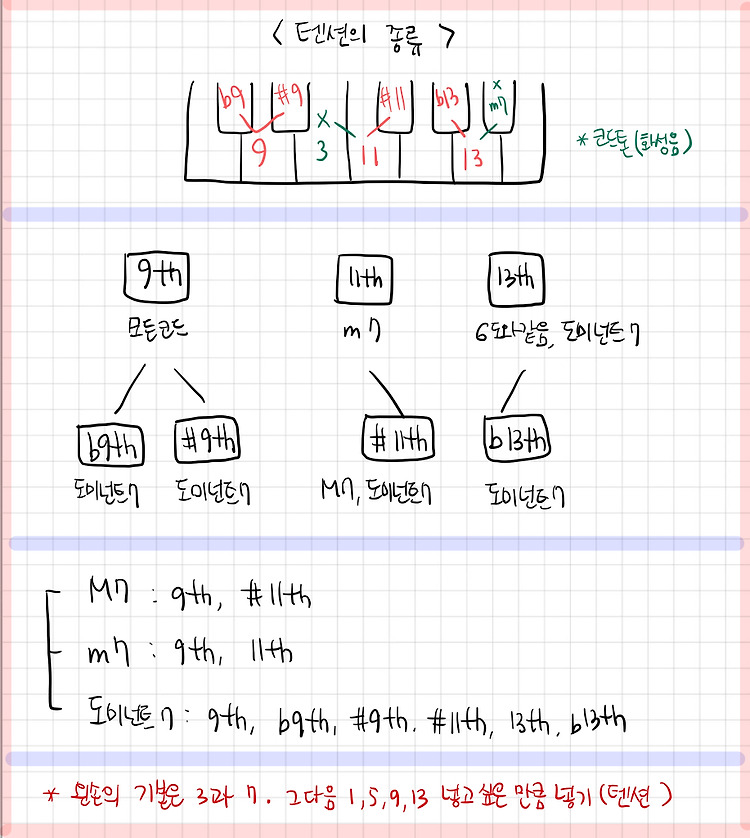 < 텐션의 종류 >
b9 #9 x #11 b13 x m7
9 3 11 13
* 코드톤(화성음)
9th 11th 13th
모든코드 m7 6도와같음, 도미넌트7
b9th #9th #11th b13th
도미넌트7 도미넌트7 M7, 도미넌트7 도미넌트7
M7 : 9th, #11th
m7 : 9th, 11th
도미넌트7 : 9th, b9th, #9th. #11th, 13th, b13th
* 왼손의 기본은 3과 7. 그다음 1,5,9,13 넣고싶은 만큼 넣기(텐션)